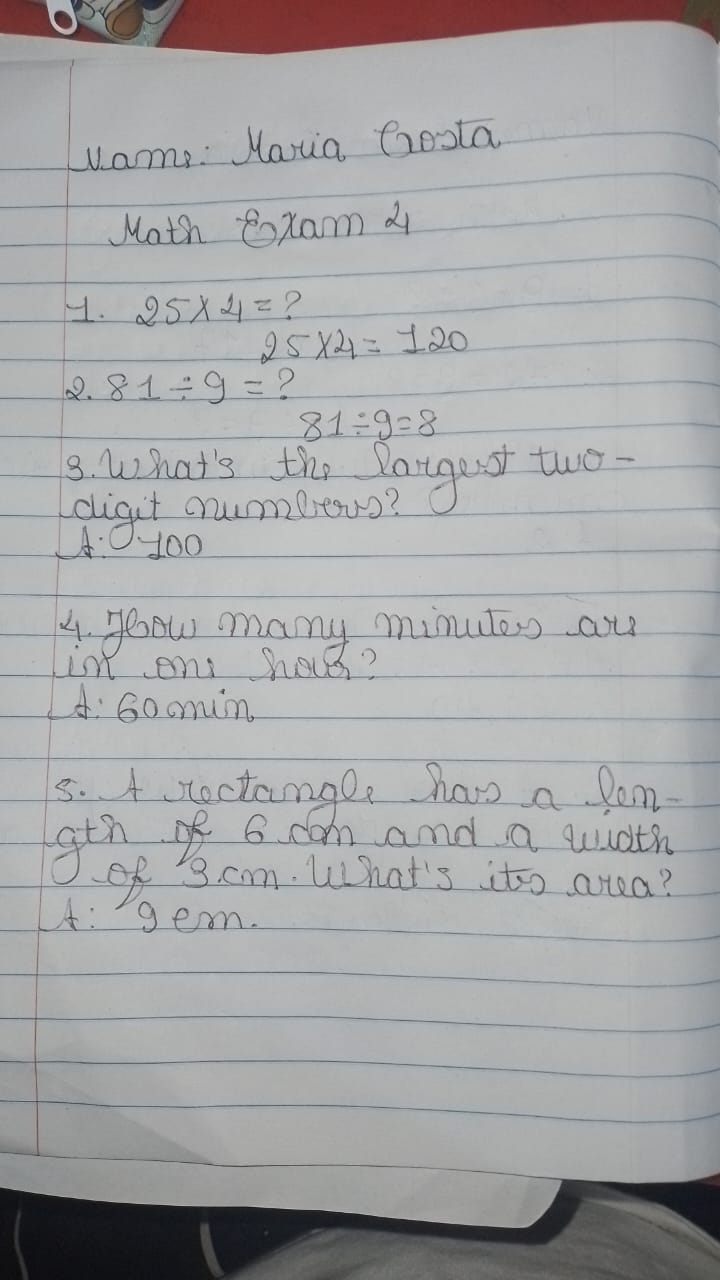 Name: Maria Costa
Math Exam 4
1. 25 x 4 = ?
25 x 4 = 120
2. 81 ÷ 9 = ?
81 ÷ 9 = 8
3. What's the largest two-
digit numbers?
A: 100
4. How many minutes are
in one hour?
A: 60 min
5. A rectangle has a len-
gth of 6 cm and a width
of 3 cm. What's its area?
A: 9 cm.